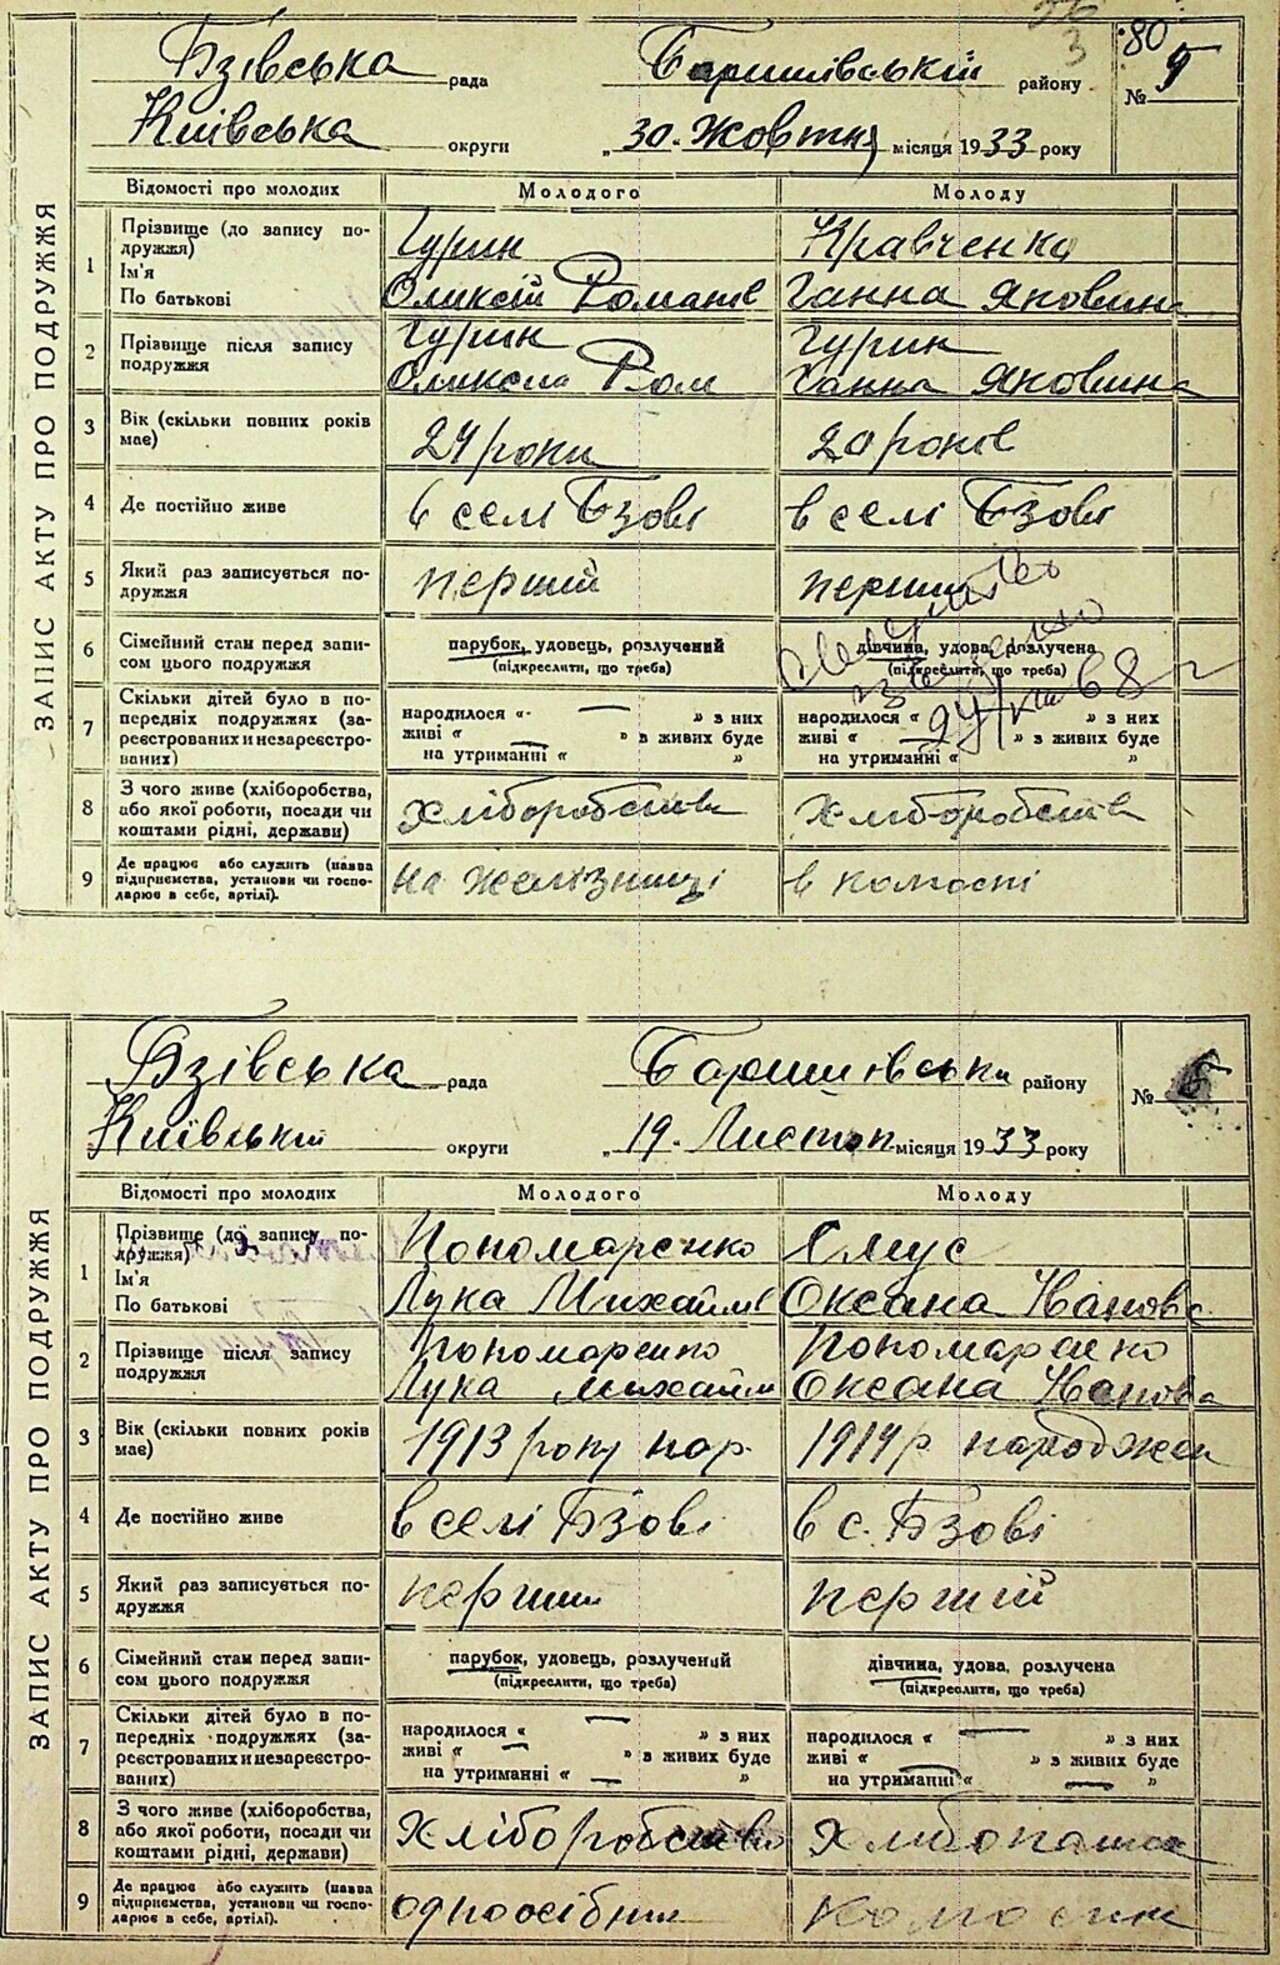 80
Бзівська рада Баришівській району № 5
Київська округи „30. Жовтня місяця 1933 року
ЗАПИС АКТУ ПРО ПОДРУЖЖЯ
Відомості про молодих Молодого Молоду
1 Прізвище (до запису по-
дружжя) Гурин Кравченко
Ім'я
По батькові Оликсій Романів Ганна Яковина
2 Прізвище після запису Гурин Гурин
подружжя Ром Ганна Яковина
3 Вік (скільки повних років
має) 24 роки 20 років
4 Де постійно живе в селі Бзові в селі Бзові
5 Який раз записується по-
дружжя перший
6 Сімейний стан перед запи-
сом цього подружжя парубок, удовець, розлучений дівчина, удова, розлучена
(підкреслити, що треба) (підкреслити, що треба)
68
7 Скільки дітей було в по-
передніх подружжях (за-
реєстрованих и незареєстро-
ваних) народилося « — » з них народилося « » з них
живі « — » в живих буде живі « » з живих буде
на утриманні « » на утриманні « »
8 З чого живе (хліборобства,
або якої роботи, посади чи
коштами рідні, держави) хліборобства хліборобства
9 Де працює або служить (назва
підприємства, установи чи госпо-
дарює в себе, артілі). на желізниці
Бзівська рада Баришівська району №
Київській округи „19. Листоп місяця 1933 року
ЗАПИС АКТУ ПРО ПОДРУЖЖЯ
Відомості про молодих Молодого Молоду
1 Прізвище (до запису по-
дружжя) Пономаренко Ємус
Ім'я
По батькові Лука Михайлів Оксана Іванова
2 Прізвище після запису Пономаренко Пономаренко
подружжя Лука Михайлі Оксана Іванова
3 Вік (скільки повних років
має) 1913 року нар. 1914 р. народжен
4 Де постійно живе в селі Бзові в с. Бзові
5 Який раз записується по-
дружжя перший перший
6 Сімейний стан перед запи-
сом цього подружжя парубок, удовець, розлучений дівчина, удова, розлучена
(підкреслити, що треба) (підкреслити, що треба)
7 Скільки дітей було в по-
передніх подружжях (за-
реєстрованих и незареєстро-
ваних) народилося « — » з них народилося « — » з них
живі « — » в живих буде живі « — » з живих буде
на утриманні « — » на утриманні « — »
8 З чого живе (хліборобства,
або якої роботи, посади чи
коштами рідні, держави) хліборобство
9 Де працює або служить (назва
підприємства, установи чи госпо-
дарює в себе, артілі). одноосібник